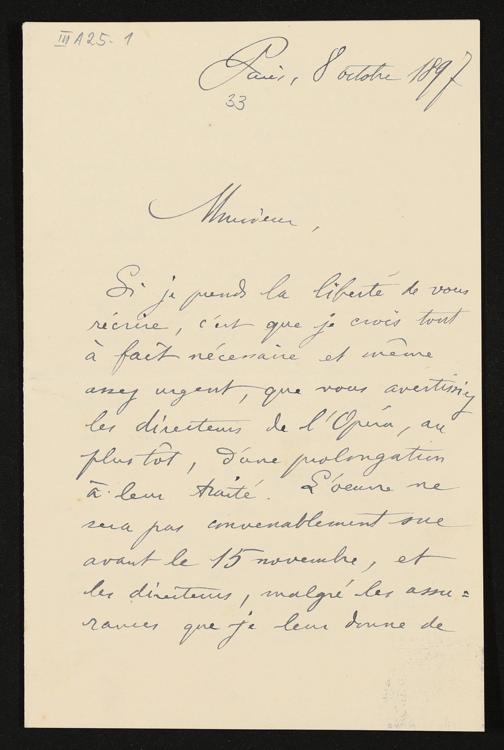 III A 25-1
Paris, 8 octobre 1897
33
Monsieur,
Si je prends la liberté de vous
récrire, c'est que je crois tout
à fait nécessaire et même
assez urgent, que vous avertissiez
les directeurs de l'Opéra, au
plus tôt, d'une prolongation
à leur traité. L'oeuvre ne
sera pas convenablement sue
avant le 15 novembre, et
les directeurs, malgré les assu=
rances que je leur donne de